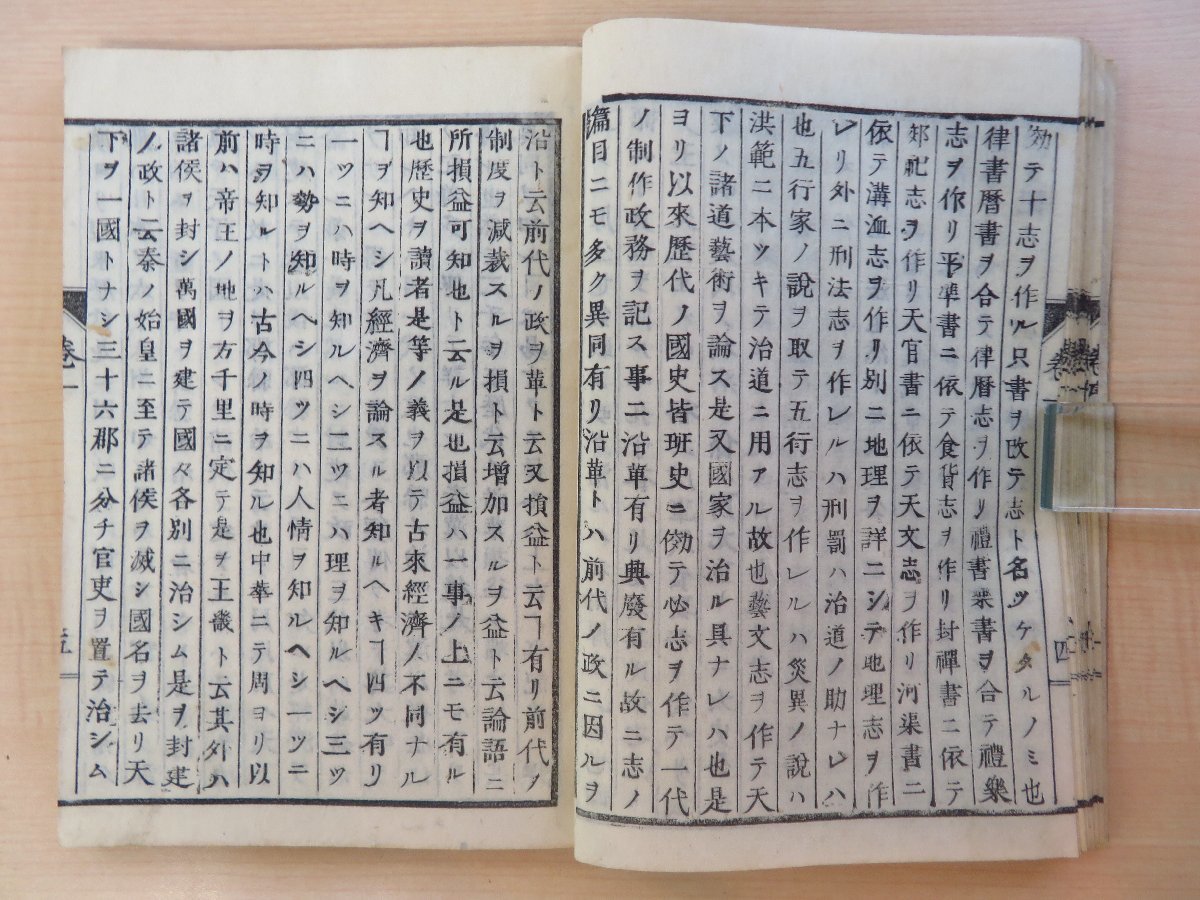 効テ十志ヲ作ル只書ヲ改テ志ト名ツケタルノミ也
律書暦書ヲ合テ律暦志ヲ作リ禮書樂書ヲ合テ禮樂
志ヲ作リ平準書ニ依テ食貨志ヲ作リ封禪書ニ依テ
郊祀志ヲ作リ天官書ニ依テ天文志ヲ作リ河渠書ニ
依テ溝洫志ヲ作リ別ニ地理ヲ詳ニシテ地理志ヲ作
レリ外ニ刑法志ヲ作レルハ刑罰ハ治道ノ助ナレハ
也五行家ノ說ヲ取テ五行志ヲ作レルハ災異ノ說ハ
洪範ニ本ツキテ治道ニ用アル故也藝文志ヲ作テ天
下ノ諸道藝術ヲ論ス是又國家ヲ治ル具ナレハ也是
ヨリ以來歴代ノ國史皆班史ニ効テ必志ヲ作テ一代
ノ制作政務ヲ記ス事ニ沿革有リ興廢有ル故ニ志ノ
篇目ニモ多ク異同有リ沿革トハ前代ノ政ニ因ルヲ
四
沿ト云前代ノ政ヲ革ト云又損益ト云ヿ有リ前代ノ
制度ヲ減裁スルヲ損ト云增加スルヲ益ト云論語ニ
所損益可知也ト云ル是也損益ハ一事ノ上ニモ有ル
也歴史ヲ讀者是等ノ義ヲ以テ古來經濟ノ不同ナル
ヿヲ知ヘシ凡經濟ヲ論スル者知ルヘキヿ四ツ有リ
一ツニハ時ヲ知ルヘシ二ツニハ理ヲ知ルヘシ三ツ
ニハ勢ヲ知ルヘシ四ツニハ人情ヲ知ルヘシ一ツニ
時ヲ知ルトハ古今ノ時ヲ知ル也中華ニテ周ヨリ以
前ハ帝王ノ地ヲ方千里ニ定テ是ヲ王畿ト云其外ハ
諸侯ヲ封シ萬國ヲ建テ國々各別ニ治シム是ヲ封建
ノ政ト云秦ノ始皇ニ至テ諸侯ヲ滅シ國名ヲ去リ天
下ヲ一國トナシ三十六郡ニ分チ官吏ヲ置テ治シム
卷一
五